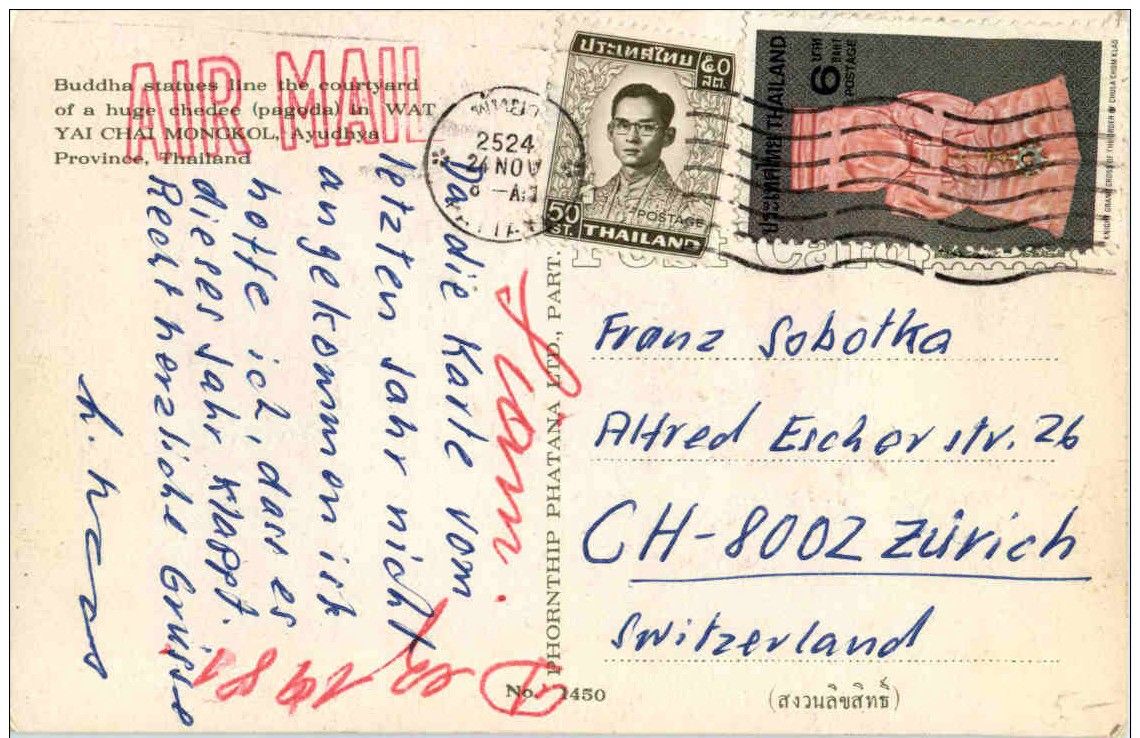 Buddha statues line the courtyard
of a huge chedee (pagoda) in WAT
YAI CHAI MONGKOL, Ayudhya
Province, Thailand
AIR MAIL
2524
24 NOV
ประเทศไทย ๕๐ สต.
50 ST. POSTAGE
THAILAND
ประเทศไทย THAILAND
6 บาท BAHT
POSTAGE
KNIGHT GRAND CROSS OF THE ORDER OF CHULA CHOM KLAO
Post Card
Da die Karte vom
letzten Jahr nicht
angekommen ist
hoffe ich, dass es
dieses Jahr klappt.
Recht herzliche Grüsse
1981
PHORNTHIP PHATANA LTD., PART.
Franz Sobotka
Alfred Escherstr. 26
CH-8002 Zürich
Switzerland
No. 1450
(สงวนลิขสิทธิ์)
5-